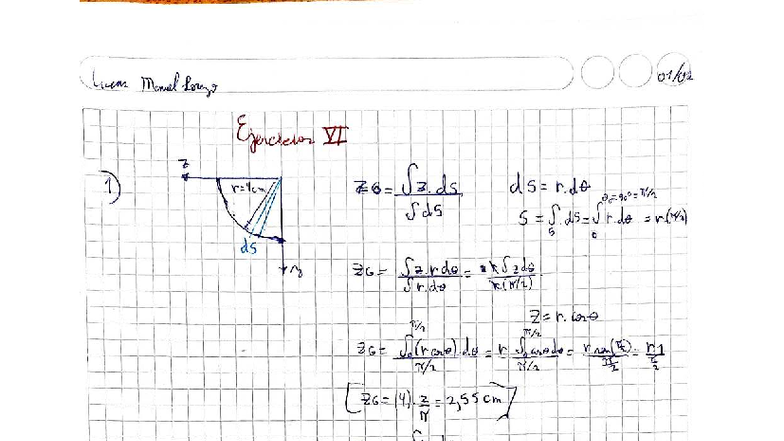 Lucas Manuel Lorenzo 01/02
Ejercicios VI
1) z r=4cm dS y
zG = ∫z.ds / ∫ds
ds = r.dθ
S = ∫s ds = ∫0^θ0=90°=π/2 r.dθ = r(π/2)
zG = ∫z.r.dθ / ∫r.dθ = r∫z dθ / r(π/2)
z = r.cosθ
zG = ∫0^π/2 (r cosθ).dθ / π/2 = r ∫0^π/2 cosθ dθ / π/2 = r sen(π/2) / π/2 = r.1 / π/2
[zG = (4).2/π = 2,55 cm]